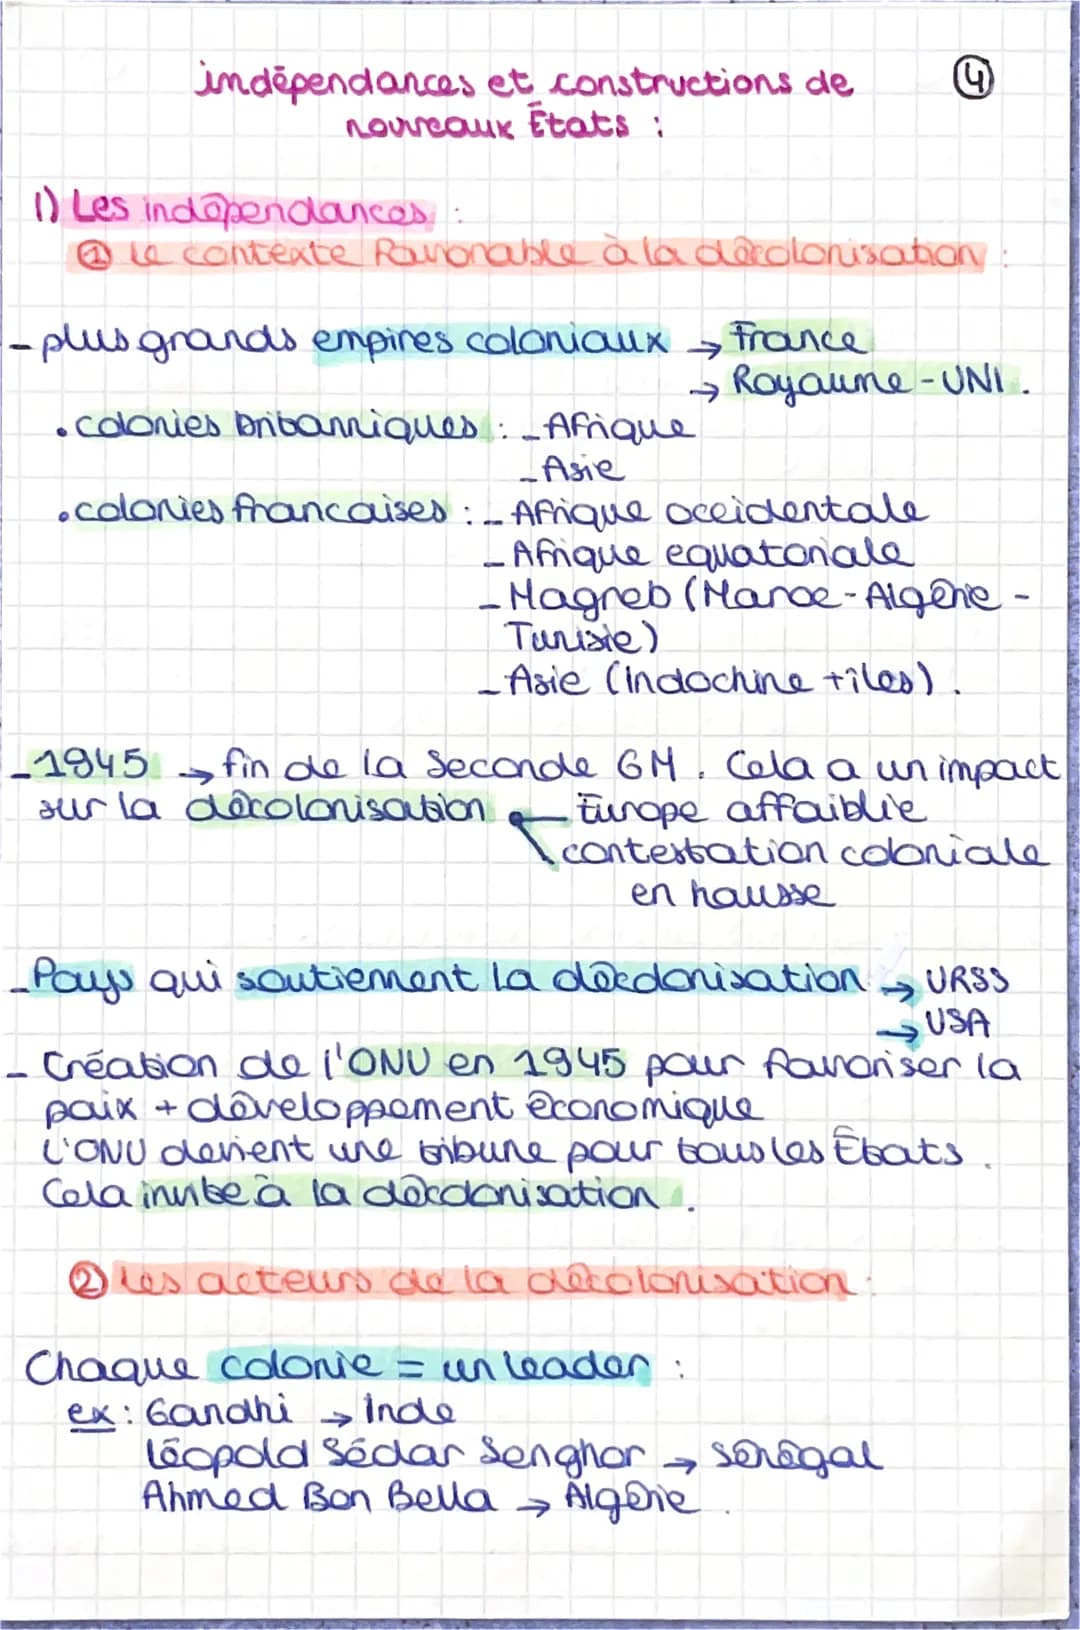 indépendances et constructions de
4
nouveaux États :
1) Les indépendances :
① Le contexte favorable à la décolonisation :
- plus grands empires coloniaux → France
→ Royaume - UNI.
. colonies britanniques : - Afrique
- Asie
. colonies francaises : - Afrique occidentale
- Afrique equatoriale
- Magreb (Maroc - Algérie -
Tunisie)
- Asie (Indochine + îles).
- 1945 → fin de la Seconde GM. Cela a un impact
sur la décolonisation Europe affaiblie
contestation coloniale
en hausse
- Pays qui soutiennent la décolonisation → URSS
→ USA
- Création de l'ONU en 1945 pour favoriser la
paix + développement économique
L'ONU devient une tribune pour tous les États.
Cela invite à la décolonisation.
② Les acteurs de la décolonisation :
Chaque colonie = un leader :
ex : Gandhi → Inde
Léopold Sédar Senghor → Sénégal
Ahmed Ben Bella → Algérie.